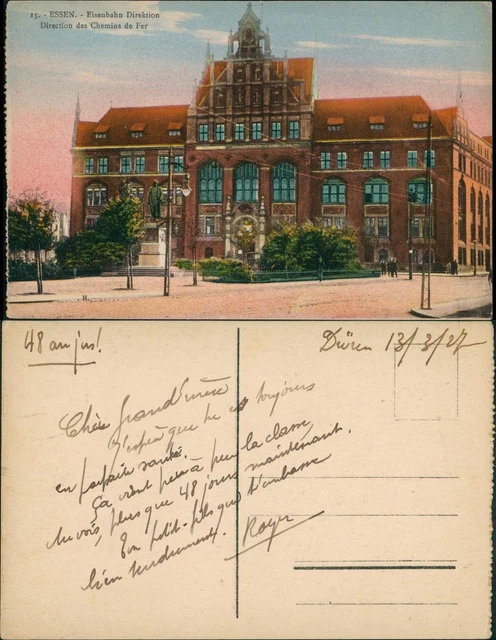 15. - ESSEN. - Eisenbahn Direktion
Direction des Chemins de Fer
H.
48 au jus!
Düren 13/3/27
Chère Grand'mère
J'espère que tu es toujours
en parfaite santé.
Ça vient peu à peu la classe,
tu vois, plus que 48 jours maintenant.
Ton petit-fils qui t'embrasse
bien tendrement.
Roger